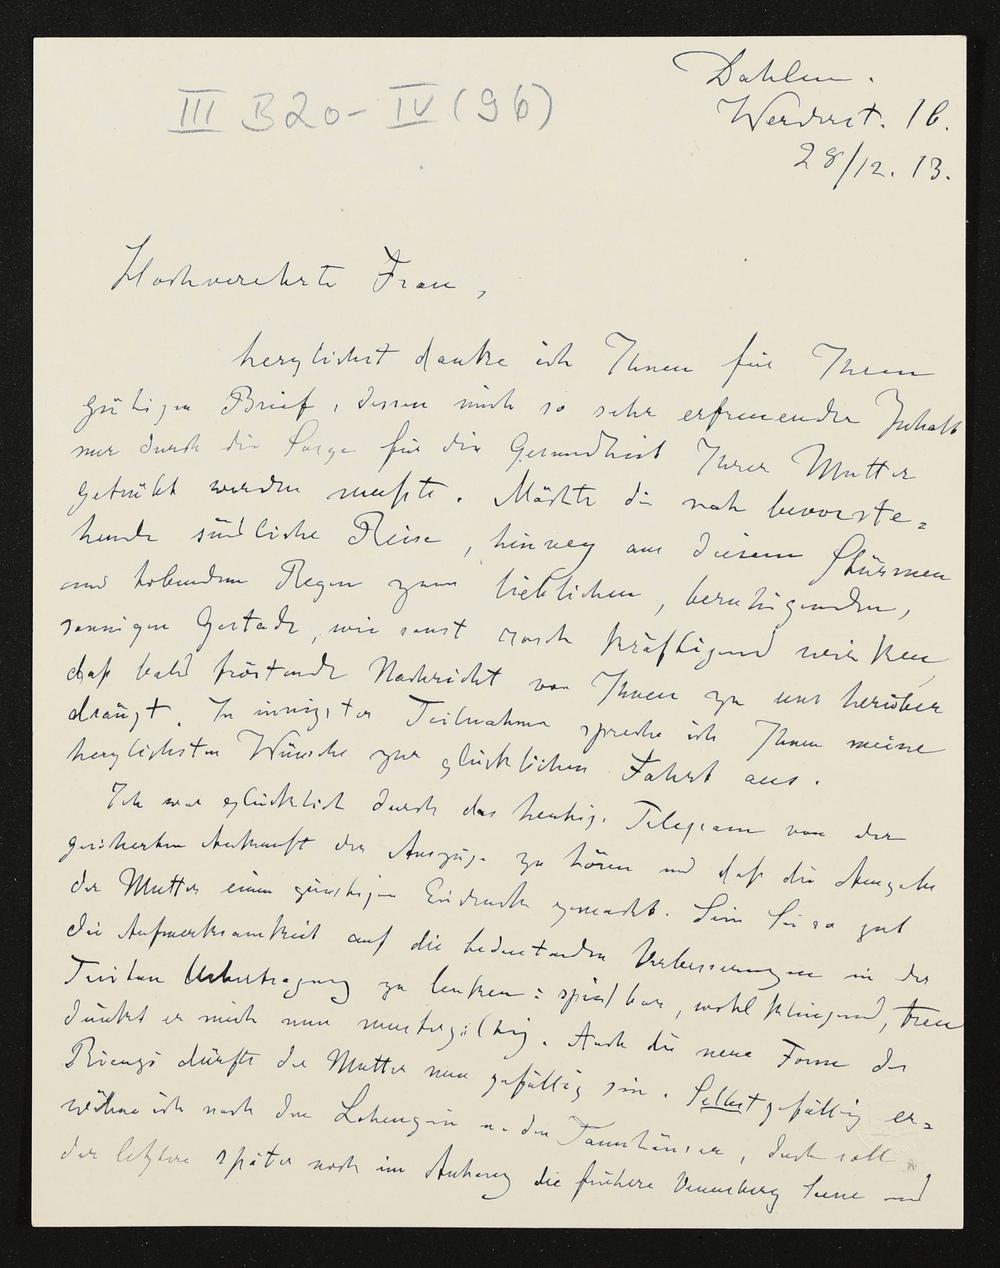 III B20-IV (96)
Dahlem.
Werderst. 16.
28/12. 13.
Hochverehrte Frau,
herzlichst danke ich Ihnen für Ihren
gütigen Brief, dessen mich so sehr erfreuender Inhalt
nur durch die Sorge für die Gesundheit Ihrer Mutter
getrübt werden musste. Möchte die nah bevorste=
hende südliche Reise, hinweg aus diesem Stürmen
und tobendem Regen zum lieblichen, beruhigenden,
sonnigen Gestade, wie sonst rasch kräftigend wirken,
daß bald tröstende Nachricht von Ihnen zu uns herüber
dringt. In innigster Teilnahme spreche ich Ihnen meine
herzlichsten Wünsche zur glücklichen Fahrt aus.
Ich war glücklich durch das heutige Telegram von der
gesicherten Ankunft der Auszüge zu hören und daß die Ausgabe
der Mutter einen günstigen Eindruck gemacht. Sein Sie so gut
die Aufmerksamkeit auf die bedeutenden Verbesserungen in der
Tristan Uebertragung zu lenken: spielbar, wohlklingend, treu
dünkt er mich nun mustergültig. Auch die neue Form des
Rienzi dürfte der Mutter nun gefällig sein. Selbstgefällig er=
wähne ich noch den Lohengrin u. den Tannhäuser, doch soll
der letztere später noch im Anhang die frühere Venusberg Scene und